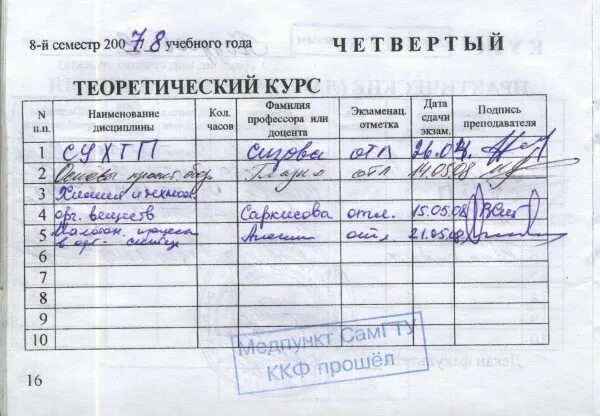 8-й семестр 2007/8 учебного года
ЧЕТВЕРТЫЙ
ТЕОРЕТИЧЕСКИЙ КУРС
N п.п. Наименование дисциплины Кол. часов Фамилия профессора или доцента Экзаменац. отметка Дата сдачи экзам. Подпись преподавателя
1 СУХТП Сизова отл 26.04
2 Основы проект. отл 14.05.08
3 Химия и технол.
4 орг. веществ Саркисова отл. 15.05.08
5 отл 21.05.08
в орг. синтезе
6
7
8
9
10
Медпункт СамГТУ
ККФ прошёл
16